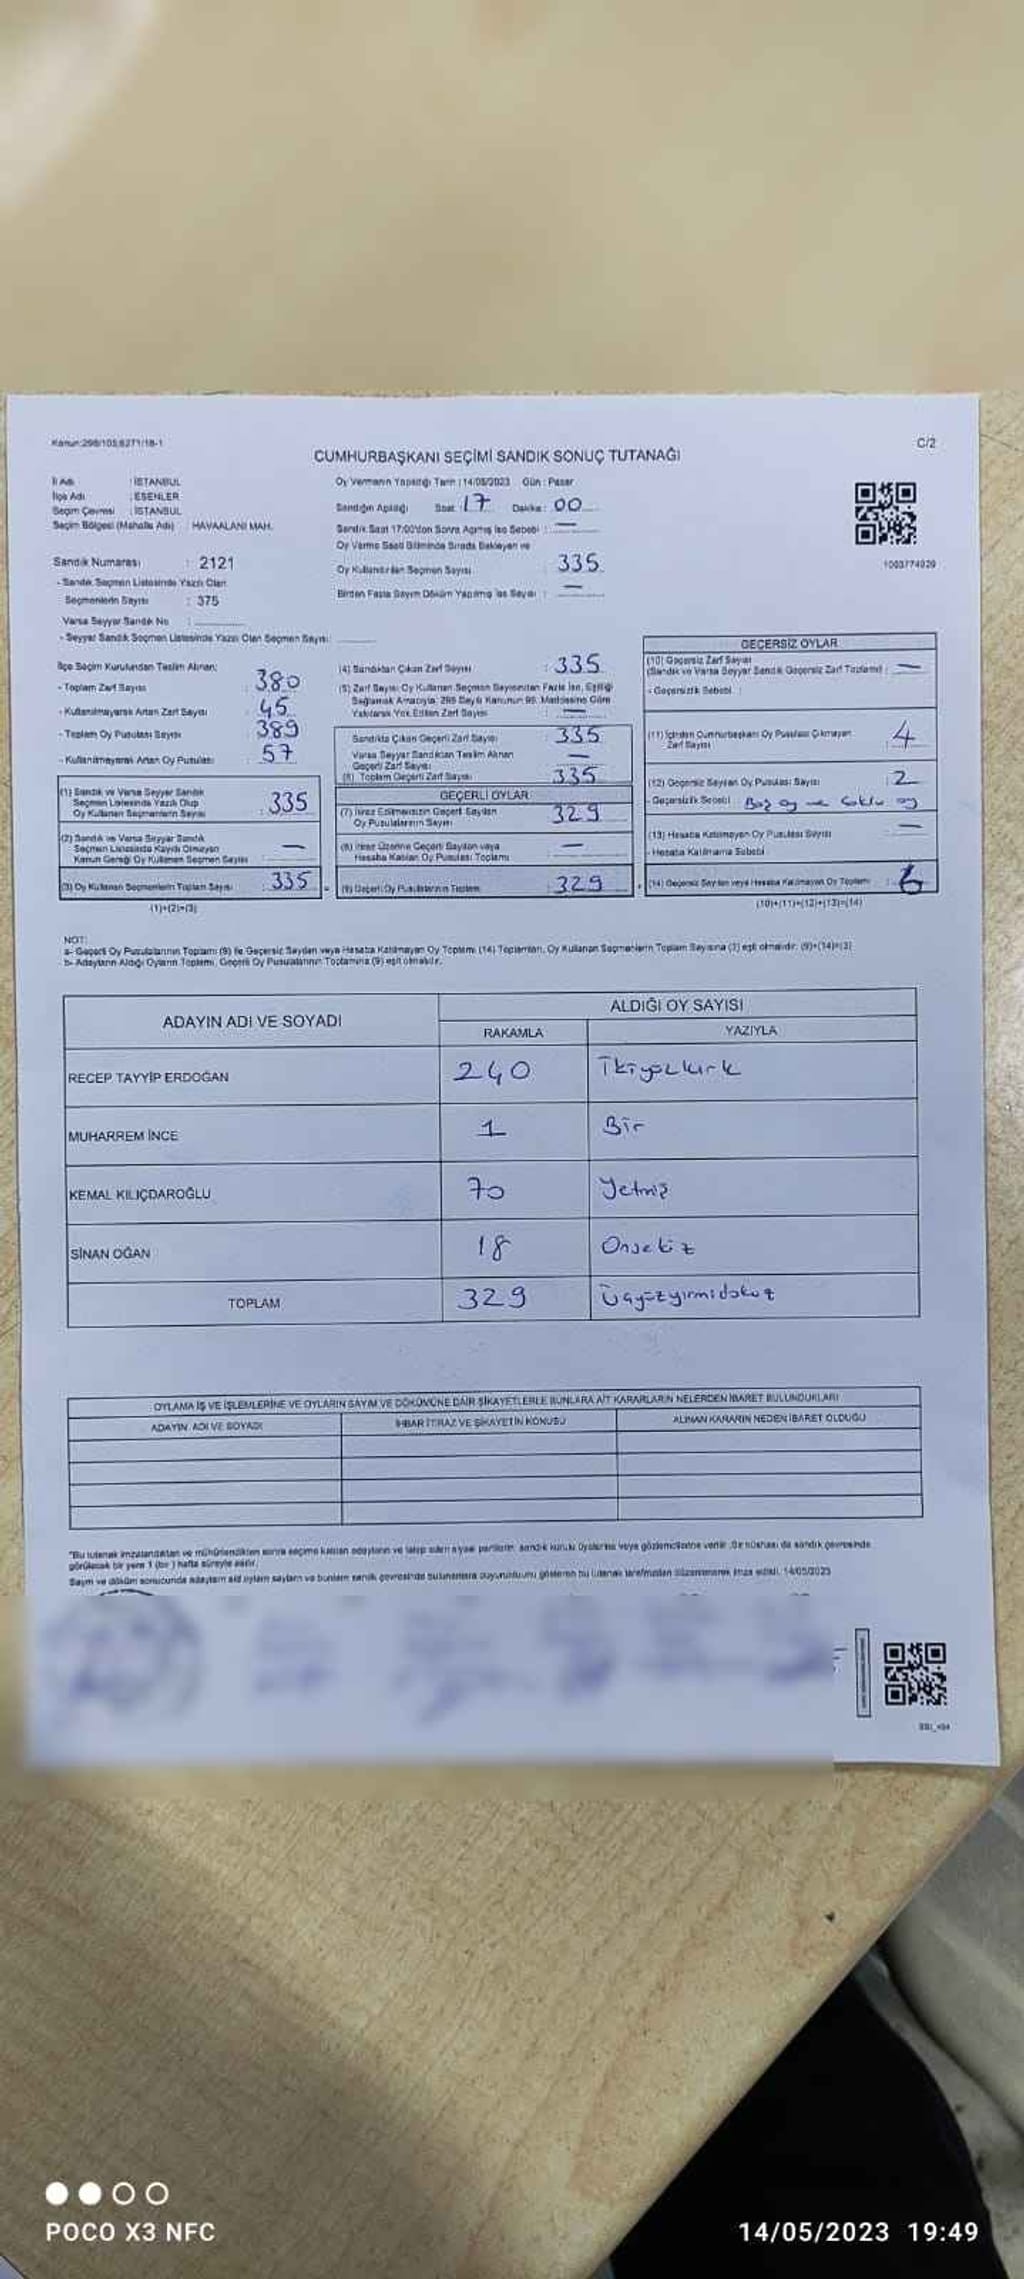 Kanun:298/105,6271/18-1
C/2
CUMHURBAŞKANI SEÇİMİ SANDIK SONUÇ TUTANAĞI
İl Adı : İSTANBUL
İlçe Adı : ESENLER
Seçim Çevresi : İSTANBUL
Seçim Bölgesi (Mahalle Adı) : HAVAALANI MAH.
Oy Vermenin Yapıldığı Tarih : 14/05/2023 Gün : Pazar
Sandığın Açıldığı Saat : 17 Dakika : 00
Sandık Saat 17:00'den Sonra Açılmış İse Sebebi : —
Oy Verme Saati Bitiminde Sırada Bekleyen ve
Oy Kullandırılan Seçmen Sayısı 335
Birden Fazla Sayım Döküm Yapılmış İse Sayısı : —
1003774029
Sandık Numarası : 2121
- Sandık Seçmen Listesinde Yazılı Olan
Seçmenlerin Sayısı : 375
Varsa Seyyar Sandık No :
- Seyyar Sandık Seçmen Listesinde Yazılı Olan Seçmen Sayısı :
İlçe Seçim Kurulundan Teslim Alınan:
- Toplam Zarf Sayısı : 380
- Kullanılmayarak Artan Zarf Sayısı : 45
- Toplam Oy Pusulası Sayısı : 389
- Kullanılmayarak Artan Oy Pusulası : 57
(1) Sandık ve Varsa Seyyar Sandık
Seçmen Listesinde Yazılı Olup
Oy Kullanan Seçmenlerin Sayısı : 335
(2) Sandık ve Varsa Seyyar Sandık
Seçmen Listesinde Kaydı Olmayan
Kanun Gereği Oy Kullanan Seçmen Sayısı —
(3) Oy Kullanan Seçmenlerin Toplam Sayısı : 335
(1)+(2)=(3)
(4) Sandıktan Çıkan Zarf Sayısı : 335
(5) Zarf Sayısı Oy Kullanan Seçmen Sayısından Fazla İse, Eşitliği
Sağlamak Amacıyla, 298 Sayılı Kanunun 98. Maddesine Göre
Yakılarak Yok Edilen Zarf Sayısı : —
Sandıkta Çıkan Geçerli Zarf Sayısı : 335
Varsa Seyyar Sandıktan Teslim Alınan
Geçerli Zarf Sayısı —
(6) Toplam Geçerli Zarf Sayısı : 335
GEÇERLİ OYLAR
(7) İtiraz Edilmeksizin Geçerli Sayılan
Oy Pusulalarının Sayısı 329
(8) İtiraz Üzerine Geçerli Sayılan veya
Hesaba Katılan Oy Pusulası Toplamı —
(9) Geçerli Oy Pusulalarının Toplamı 329
GEÇERSİZ OYLAR
(10) Geçersiz Zarf Sayısı
(Sandık ve Varsa Seyyar Sandık Geçersiz Zarf Toplamı) : —
- Geçersizlik Sebebi :
(11) İçinden Cumhurbaşkanı Oy Pusulası Çıkmayan
Zarf Sayısı 4
(12) Geçersiz Sayılan Oy Pusulası Sayısı : 2
- Geçersizlik Sebebi Boş oy ve Çoklu oy
(13) Hesaba Katılmayan Oy Pusulası Sayısı —
- Hesaba Katılmama Sebebi
(14) Geçersiz Sayılan veya Hesaba Katılmayan Oy Toplamı : 6
(10)+(11)+(12)+(13)=(14)
NOT:
a- Geçerli Oy Pusulalarının Toplamı (9) ile Geçersiz Sayılan veya Hesaba Katılmayan Oy Toplamı (14) Toplamları, Oy Kullanan Seçmenlerin Toplam Sayısına (3) eşit olmalıdır. (9)+(14)=(3)
b- Adayların Aldığı Oyların Toplamı, Geçerli Oy Pusulalarının Toplamına (9) eşit olmalıdır.
ADAYIN ADI VE SOYADI
ALDIĞI OY SAYISI
RAKAMLA YAZIYLA
RECEP TAYYİP ERDOĞAN 240 İkiyüzkırk
MUHARREM İNCE 1 Bir
KEMAL KILIÇDAROĞLU 70 Yetmiş
SİNAN OĞAN 18 Onsekiz
TOPLAM 329 Üçyüzyirmidokuz
OYLAMA İŞ VE İŞLEMLERİNE VE OYLARIN SAYIM VE DÖKÜMÜNE DAİR ŞİKAYETLERLE BUNLARA AİT KARARLARIN NELERDEN İBARET BULUNDUKLARI
ADAYIN ADI VE SOYADI İHBAR İTİRAZ VE ŞİKAYETİN KONUSU ALINAN KARARIN NEDEN İBARET OLDUĞU
*Bu tutanak imzalandıktan ve mühürlendikten sonra seçime katılan adayların ve talep eden siyasi partilerin sandık kurulu üyelerine veya gözlemcilerine verilir. Bir nüshası da sandık çevresinde
görülecek bir yere 1 (bir) hafta süreyle asılır.
Sayım ve döküm sonucunda adayların aldığı oyların sayıları ve bunların sandık çevresinde bulunanlara duyurulduğunu gösteren bu tutanak tarafımızdan düzenlenerek imza edildi. 14/05/2023
POCO X3 NFC
14/05/2023 19:49